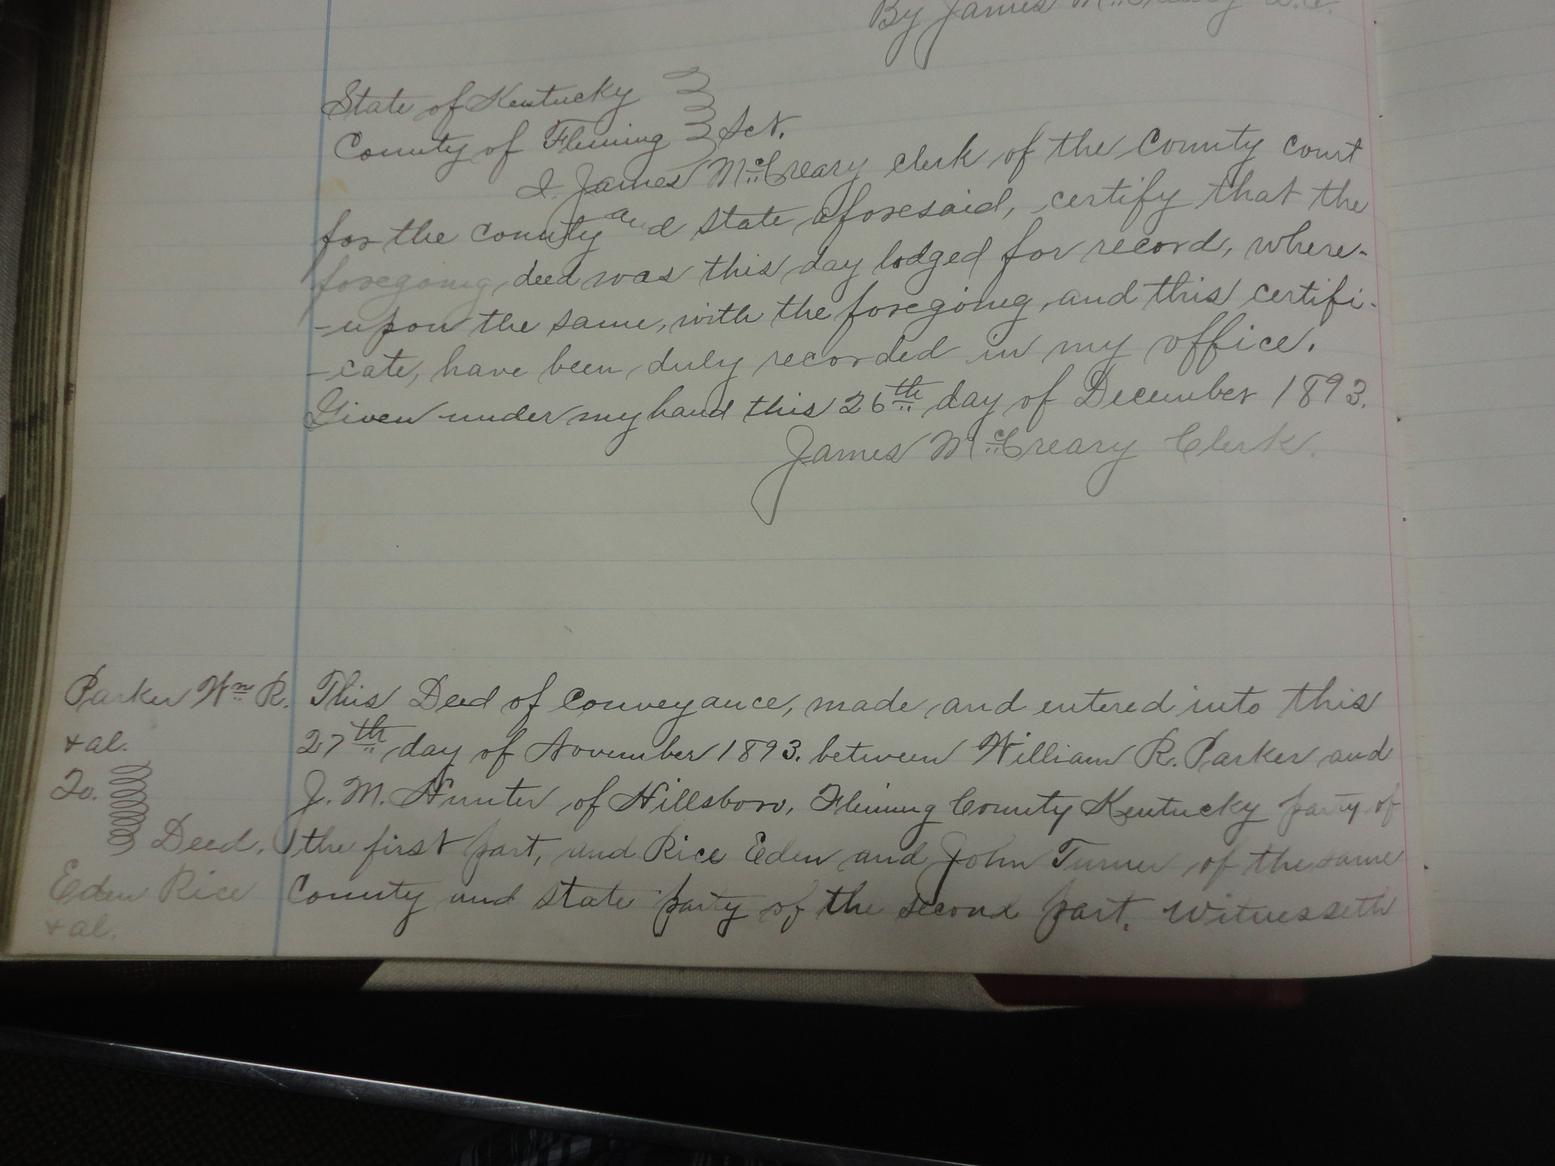 By James McCreary D.C.
State of Kentucky
County of Fleming Sct.
I James McCreary clerk of the County court
for the county and state aforesaid, certify that the
foregoing deed was this day lodged for record, where-
-upon the same, with the foregoing, and this certifi-
-cate, have been duly recorded in my office.
Given under my hand this 26th day of December 1893.
James McCreary Clerk.
Parker Wm R.
+al.
To.
Deed.
Eden Rice
+al.
This Deed of Conveyance, made and entered into this
27th day of November 1893. between William R. Parker and
J. M. Hunter of Hillsboro, Fleming County Kentucky party of
the first part, and Rice Eden and John Turner of the same
County and state party of the second part. Witnesseth